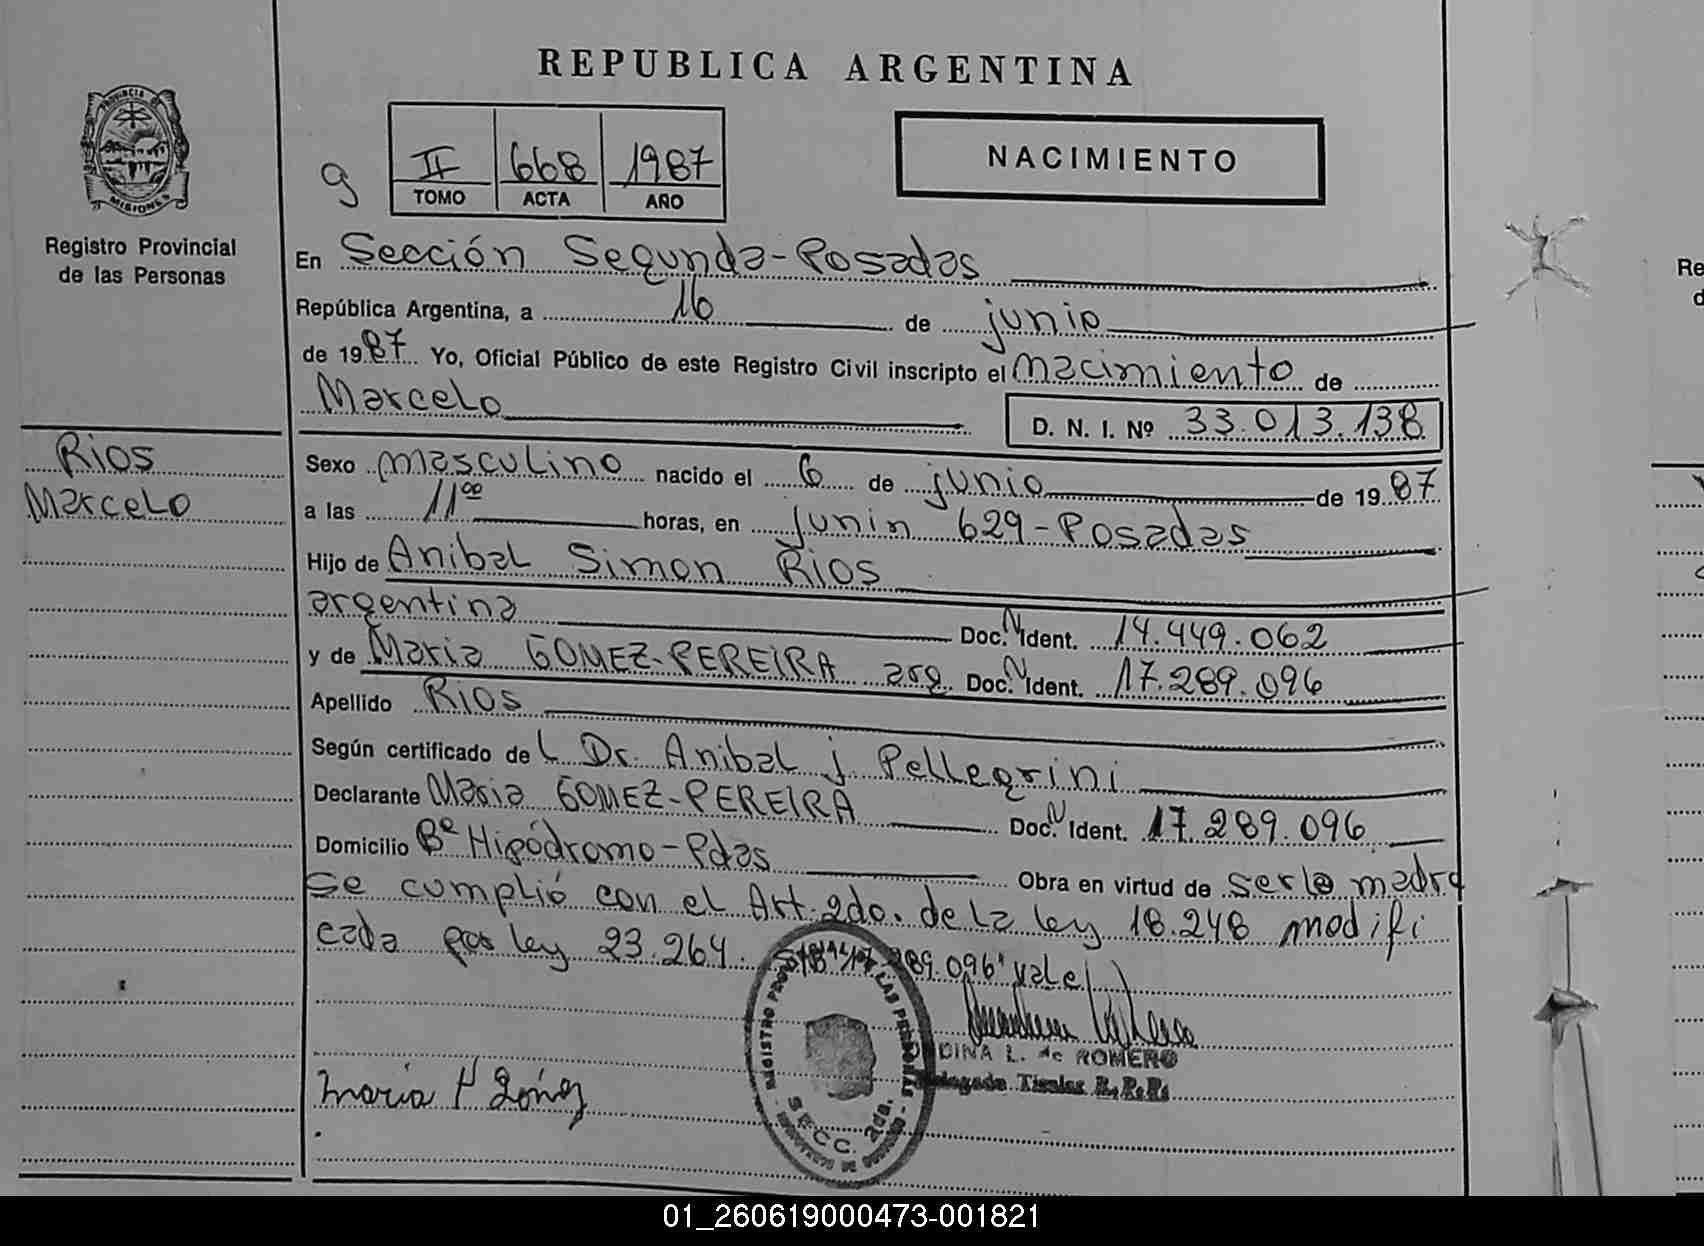 REPUBLICA ARGENTINA
PROVINCIA DE
MISIONES
Registro Provincial
de las Personas
g
II 668 1987
TOMO ACTA AÑO
NACIMIENTO
En Sección Segunda-Posadas
República Argentina, a 16 de junio
de 1987 Yo, Oficial Público de este Registro Civil inscripto el nacimiento de
Marcelo
D. N. I. Nº 33.013.138
Rios
Marcelo
Sexo masculino nacido el 6 de junio de 1987
a las 11⁰⁰ horas, en junin 629-Posadas
Hijo de Anibal Simon Rios
argentina Doc. N Ident. 14.449.062
y de Maria GOMEZ-PEREIRA arg Doc. N Ident. 17.289.096
Apellido Rios
Según certificado de L Dr. Anibal j Pellegrini
Declarante Maria GOMEZ-PEREIRA Doc. N Ident. 17.289.096
Domicilio Bº Hipódromo-Pdas Obra en virtud de ser la madre
Se cumplió con el Art. 2do. de la ley 18.248 modifi
cada por ley 23.264. 289.096" vale
DINA L. de ROMERO
Delegada Titular R.P.P.
Maria Gómez
REGISTRO LAS PERSONAS
SECC. 2da.
01_260619000473-001821
Re
d